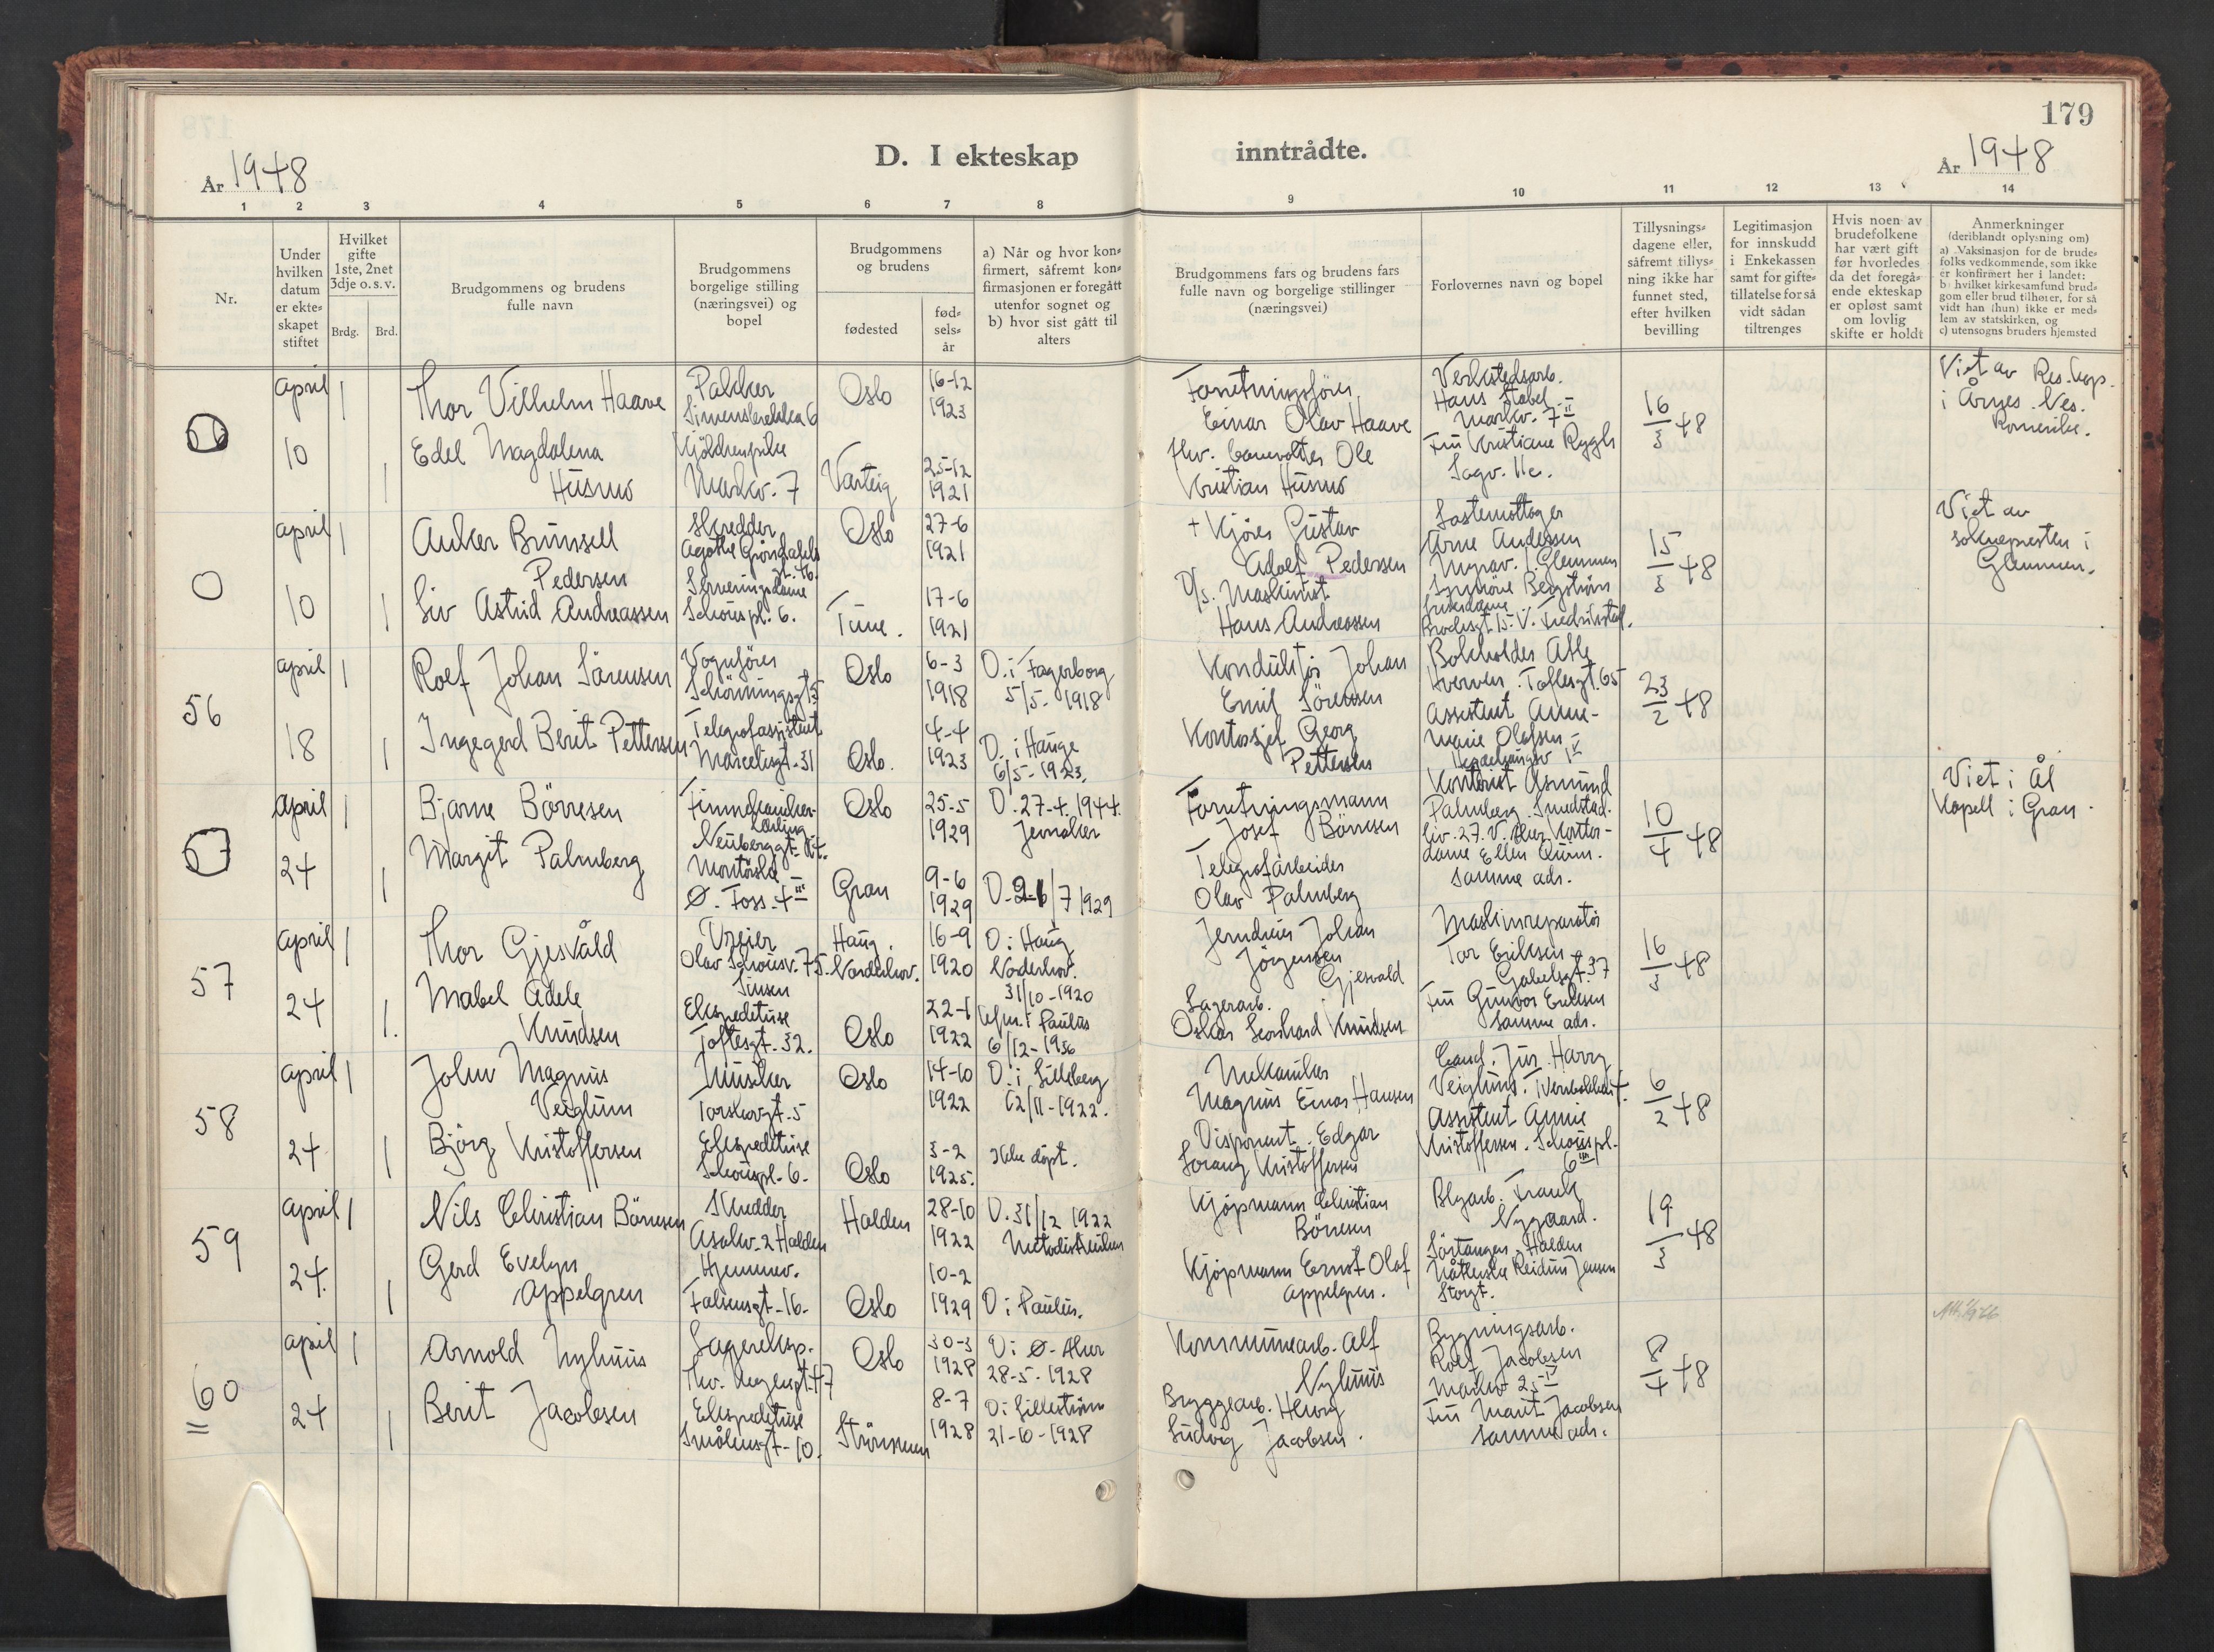 179
D. I ekteskap inntrådte.
År 1948
År 1948
1 2 3 4 5 6 7 8 9 10 11 12 13 14
Nr.
Under hvilken datum er ekte-skapet stiftet
Hvilket gifte 1ste, 2net 3dje o. s. v.
Brdg. Brd.
Brudgommens og brudens fulle navn
Brudgommens borgelige stilling (næringsvei) og bopel
Brudgommens og brudens
fødested
fød-sels-år
a) Når og hvor kon-firmert, såfremt kon-firmasjonen er foregått utenfor sognet og b) hvor sist gått til alters
Brudgommens fars og brudens fars fulle navn og borgelige stillinger (næringsvei)
Forlovernes navn og bopel
Tillysnings-dagene eller, såfremt tillys-ning ikke har funnet sted, efter hvilken bevilling
Legitimasjon for innskudd i Enkekassen samt for gifte-tillatelse for så vidt sådan tiltrenges
Hvis noen av brudefolkene har vært gift før hvorledes da det foregå-ende ekteskap er opløst samt om lovlig skifte er holdt
Anmerkninger
(deriblandt oplysning om)
a) Vaksinasjon for de brude-folks vedkommende, som ikke er konfirmert her i landet:
b) hvilket kirkesamfund brud-gom eller brud tilhører, for så vidt han (hun) ikke er med-lem av statskirken, og
c) utensogns bruders hjemsted
april 1
10 1
Thor Vilhelm Haave
Edel Magdalena
Pakker
Markv. 7
Oslo
Varteig
16-12
1923
25-12
1921
Forretningsfører
Einar Olav Haave
Ole
Kristian
Verkstedsarb.
Hans
Markv. 7 II
Fru Kristiane Rygh
Sagv. 11c.
16/3 48
Viet av Res. kap.
i Årnes. Nes.
Romerike.
april 1
10 1
Anker Brunsell
Pedersen
Liv Astrid Andreassen
Skredder
Agathe Grøndahls
gt. 46.
Serveringsdame
Schouspl. 6.
Oslo
Tune.
27-6
1921
17-6
1921
+ Kjører Gustav
Adolf Pedersen
D/s. Maskinist
Hans Andreassen
Arne Andersen
Glemmen
15/3 48
Viet av
soknepresten i
Glemmen.
56
april 1
18 1
Rolf Johan Sörensen
Ingegerd Berit Pettersen
Vognfører
Schönningsgt.
Telegrafassistent
Marcelisgt. 31
Oslo
Oslo.
6-3
1918
4-4
1923
D. i Fagerborg
5/5-1918
D. i Hauge
6/5-1923.
Konduktør Johan
Emil Sørensen
Kontorsjef Georg
Pettersen
Bokholder Atle
Toftesgt. 65
Assistent Anne-
Marie Olafsen
23/2 48
april 1
24 1
Bjarne Börresen
Margit Palmberg
Finmekaniker-
Lærling
Neuberggt.
Ø. Foss. 4 III
Oslo
Gran
25-5
1929
9-6
1929
D. 27-4. 1944.
Jevnaker
D. 21/7 1929
Forretningsmann
Josef Börresen
Telegrafarbeider
Olav Palmberg
Kontorist Asmund
Palmberg. Smedstad.
Kontor-
dame Ellen
samme adr.
10/4 48
Viet i Ål
Kapell i Gran.
57
april 1
24 1.
Thor Gjesvåld
Mabel Adele
Knudsen
Dreier
Olav Schousv. 75.
Sinsen
Ekspeditrise
Toftesgt. 32.
Haug.
Norderhov.
Oslo
16-9
1920
22-1
1922
D. i Haug
Norderhov.
31/10-1920
Kfm. i Paulus
6/12-1936
Jerndreier Johan
Jörgensen
Gjesvald
Lagerarb.
Oskar Leonhard Knudsen
Maskinreparatör
Tor Eriksen
Gabelsgt. 37
Fru Gunvor Eriksen
samme adr.
16/3 48
58
april 1
24 1
John Magnus
Veiglum
Björg Kristoffersen
Musiker
Torshovgt. 5
Ekspeditrise
Schouspl. 6.
Oslo
Oslo
14-10
1922
3-2
1925.
D. i Lilleberg
12/11-1922.
Ikke döpt.
Mekaniker
Magnus Einar Hansen
Disponent. Edgar
Kristoffersen
Cand. Jur. Harry
Veiglum.
Assistent Annie
Kristoffersen. Schouspl.
6 III
6/2 48
59
april 1
24. 1
Nils Christian Börresen
Gerd Evelyn
Appelgren
Skredder
Asakv. 2 Halden
Hjemmev.
Falsensgt. 16.
Halden
Oslo
28-10
1922
10-2
1929
D. 31/12 1922
Metodistkirken
D i Paulus.
Kjøpmann Christian
Börresen
Kjøpmann Ernst Olaf
Appelgren.
Blyarb. Frank
Nygaard.
Halden
Reidun Jensen
Storgt.
19/3 48
60
april 1
24 1
Arnold Nyhuus
Berit Jacobsen
Lagereksp.
Thv. Meyersgt. 47
Ekspeditrise
Smålensgt. 10.
Oslo
Strömmen
30-3
1928
8-7
1928
D i Ø. Aker
28-5-1928
D i Lillestrøm
21-10-1928
Kommunearb. Alf
Nyhuus
Bryggearb. Henry
Ludvig Jacobsen.
Bygningsarb.
Rolf Jacobsen
Markv 25 IV
Fru Marit Jacobsen
samme adr.
8/4 48